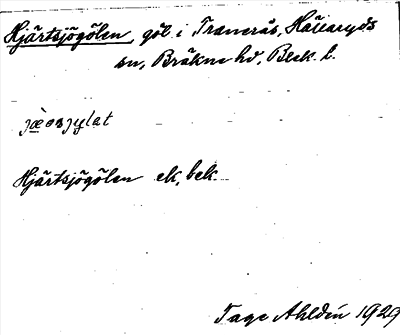 Hjärtsjögölen, göl i Tranerås, Hällaryds
sn, Bräkne hd, Blek. l.
Hjärtsjögölen ek, bek.
Tage Ahldin 1929